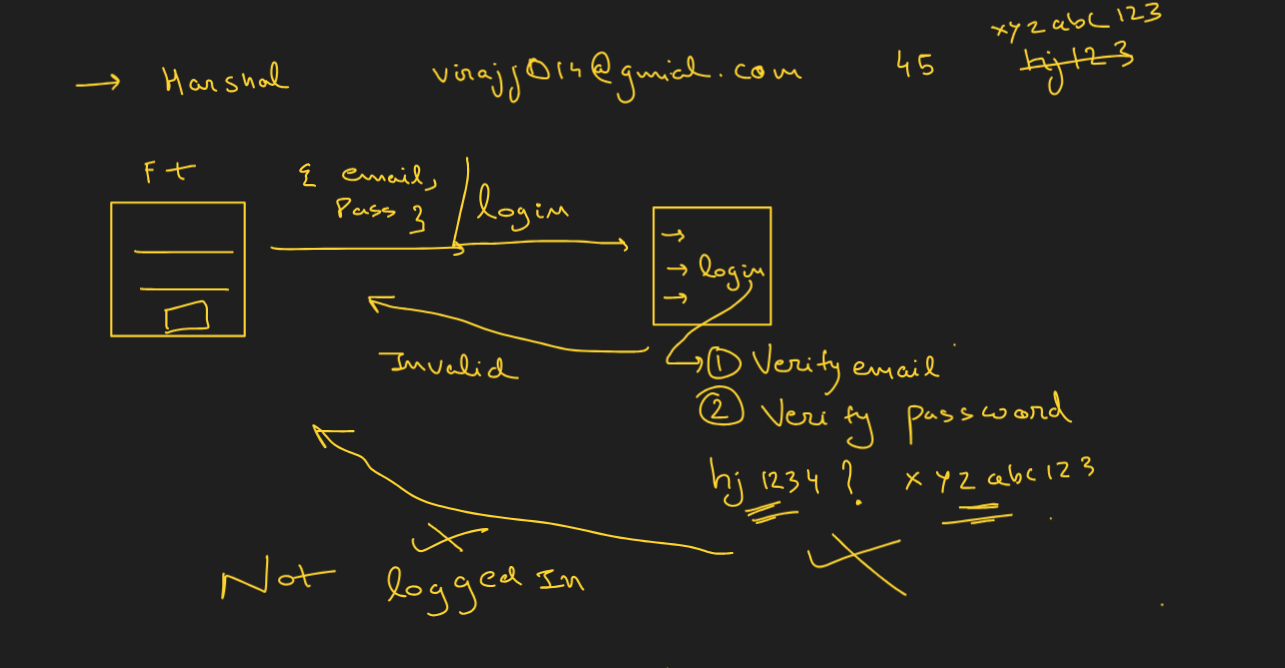 xyzabc123
→ Harshal virajj014@gmial.com 45 hj123
Ft
{ email,
Pass }
/login
→
→ login
→
Invalid
① Verify email
② Verify password
hj1234? xyzabc123
Not logged In